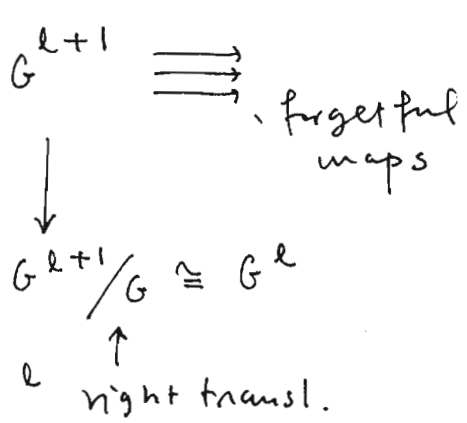 G^{l+1} ⇶
forgetful
maps
↓
G^{l+1}/G ≅ G^l
↑
l right transl.